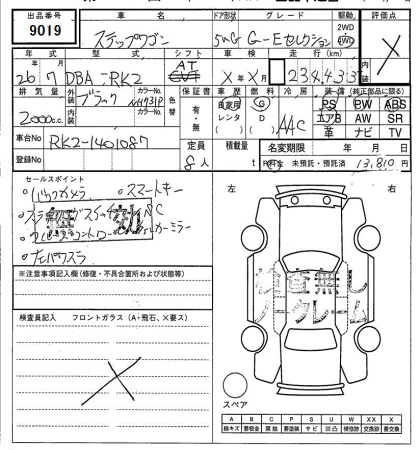 出品番号 車名 ドア形状 グレード 駆動 評価点
9019 ステップワゴン 5WG G-Eセレクション 2WD 4WD X
年式 型式 シフト 車検 走行(km)
26年7月 DBA-RK2 AT CVT X年X月 234,433
排気量 外装 カラーNo. 色替 保証書 車歴 燃料 冷房 装備(純正部品に限る)
2000cc ブラック NH731P 有・無 自家用 レンタ G D AAC PS PW ABS
内装 カラーNo. エアB AW SR
革 ナビ TV
車台No RK2-1401087 定員 8人 積載量 t 名変期限 年 月 日
登録No 未預託・預託済 13,810円
セールスポイント
・バックカメラ ・スマートキー
無効
・クルーズコントロール
左 右
※注意事項記入欄(修復・不具合箇所および状態等)
検査無し
ノークレーム
検査員記入 フロントガラス(A・飛石、X要ス)
X
スペア
A B C P S U W X XX
線キズ 要板金 腐蝕 要塗装 サビ 凹凸 補修跡 要交換